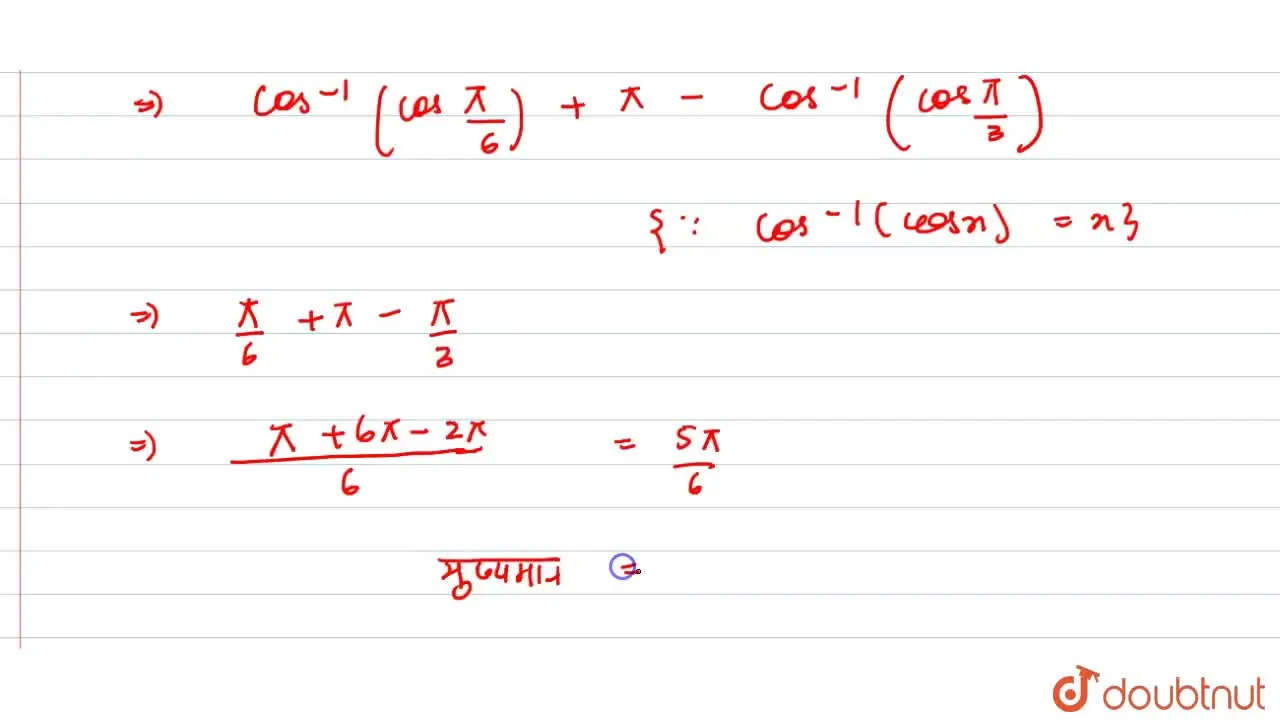 ⇒) cos⁻¹ (cos π/6) + π − cos⁻¹ (cos π/3)
{∵ cos⁻¹(cosx) = x}
⇒) π/6 + π − π/3
⇒) (π + 6π − 2π)/6 = 5π/6
मुख्यमान =
doubtnut